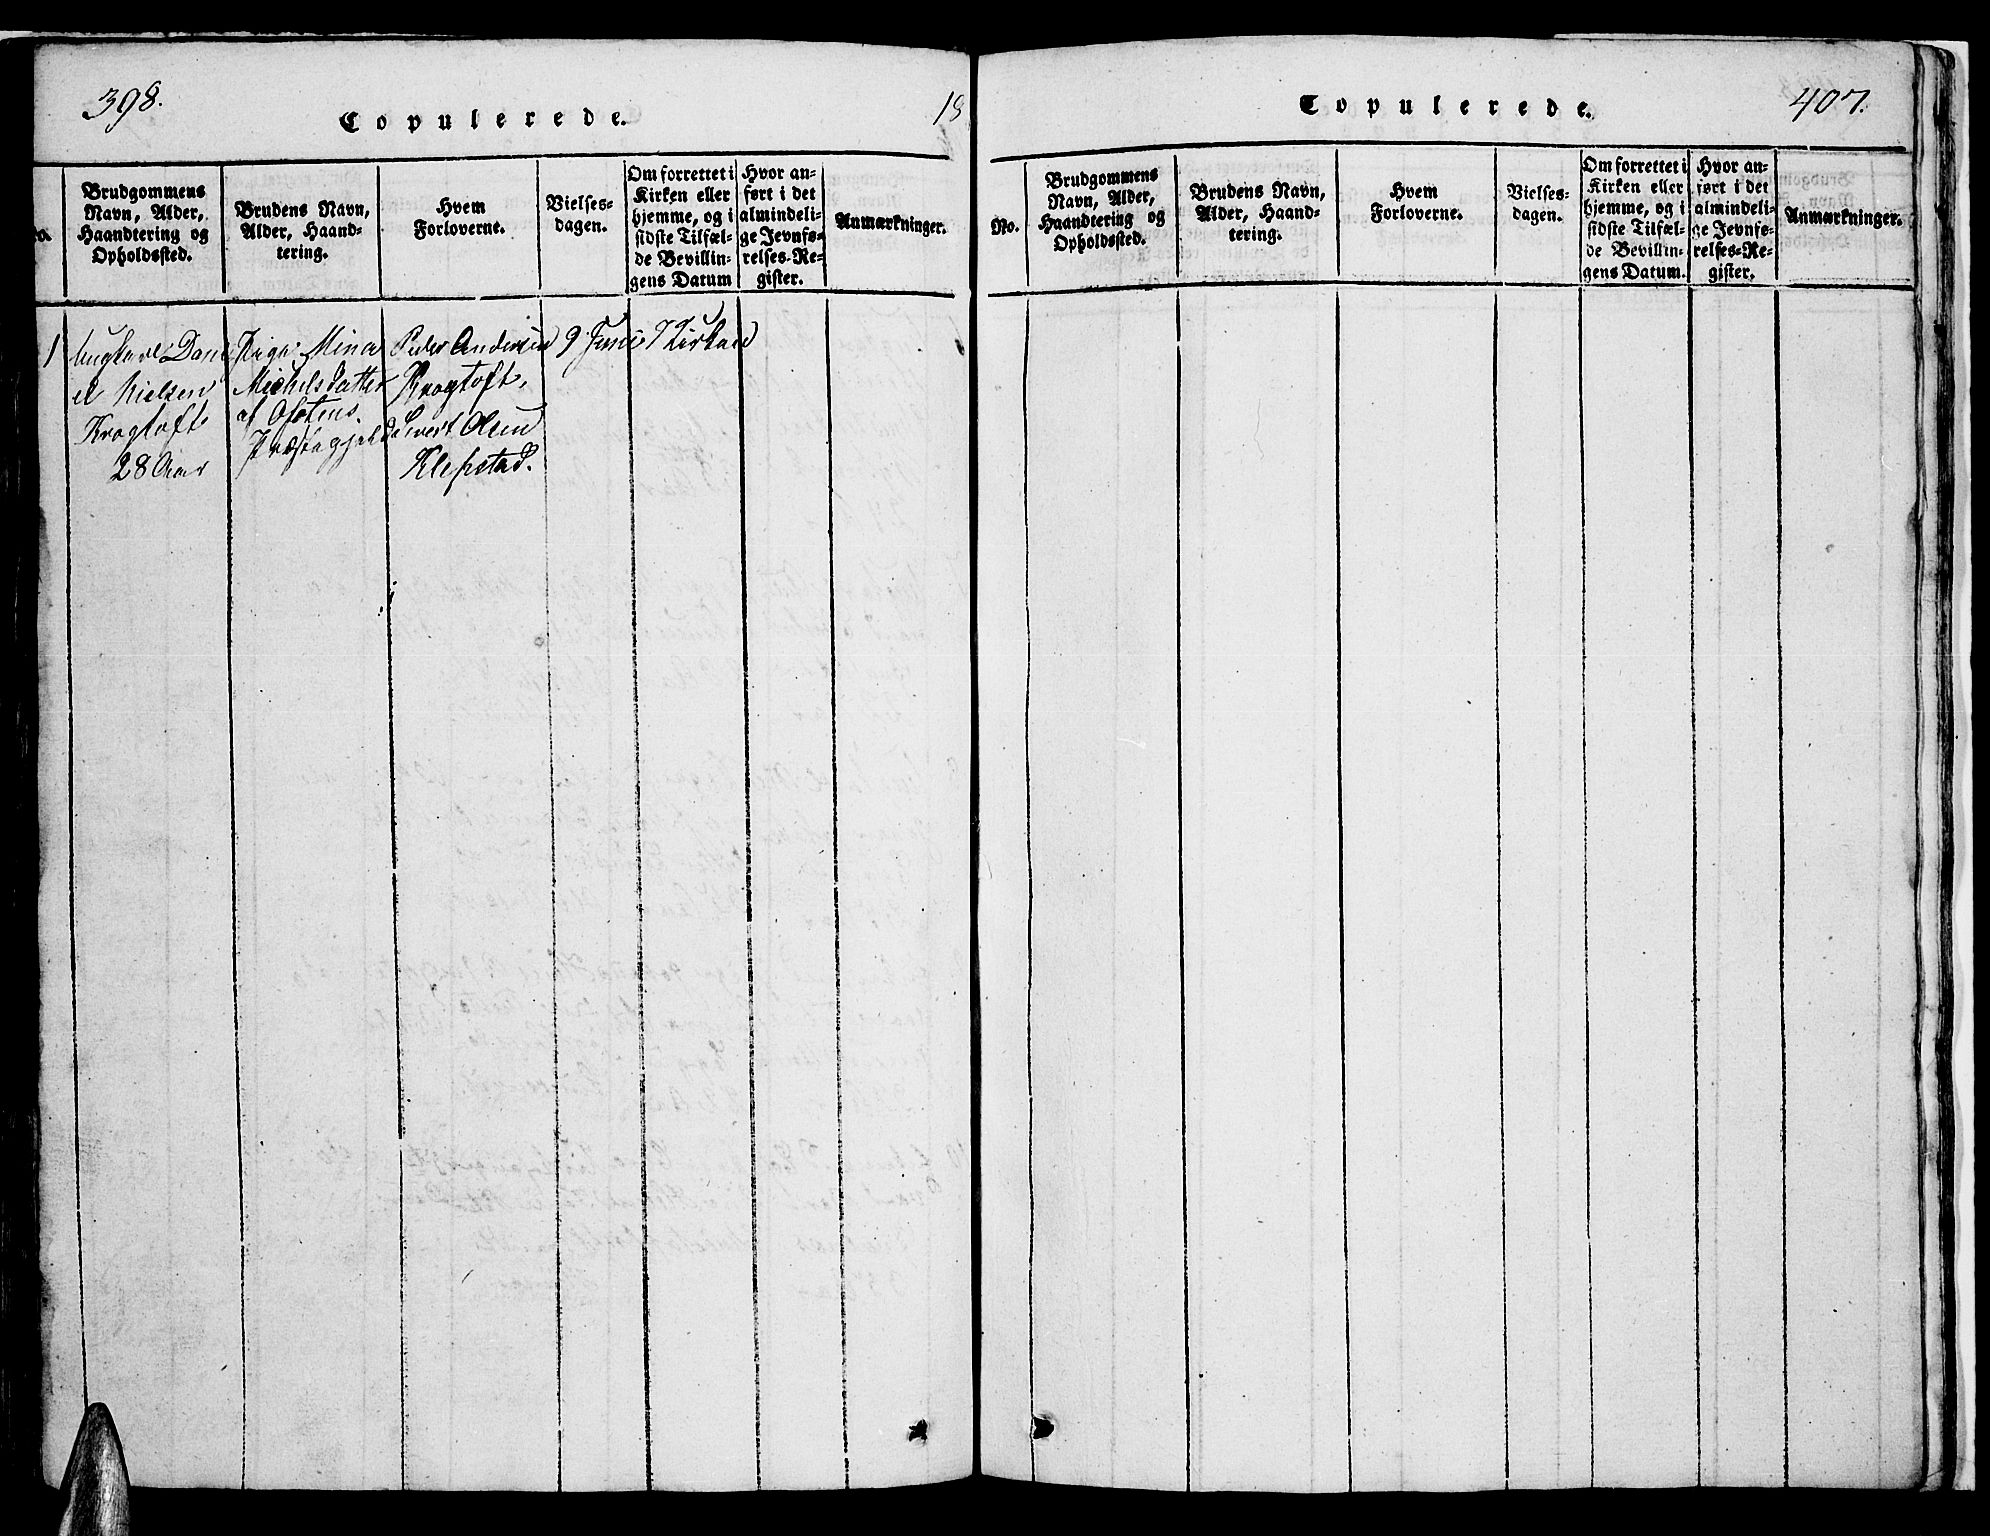 398.
Copulerede.
18
No.
Brudgommens
Navn, Alder,
Haandtering og
Opholdssted.
Brudens Navn,
Alder, Haand-
tering.
Hvem
Forloverne.
Vielses-
dagen.
Om forrettet i
Kirken eller
hjemme, og i
sidste Tilfæl-
de Bevillin-
gens Datum
Hvor an-
ført i det
almindeli-
ge Jevnfø-
relses-Re-
gister.
Anmærkninger.
1
Ungkarl Dani
el Nielsen
Krogtoft
28 Aar
Pige Mina
Michelsdatter
af Ofotens
Præstegjeld
Peder Andersen
Krogtoft,
Sivert Olsen
Klepstad.
9 Juni
Kirken
Copulerede.
407.
No.
Brudgommens
Navn, Alder,
Haandtering og
Opholdssted.
Brudens Navn,
Alder, Haand-
tering.
Hvem
Forloverne.
Vielses-
dagen.
Om forrettet i
Kirken eller
hjemme, og i
sidste Tilfæl-
de Bevillin-
gens Datum.
Hvor an-
ført i det
almindeli-
ge Jevnfø-
relses-Re-
gister.
Anmærkninger.